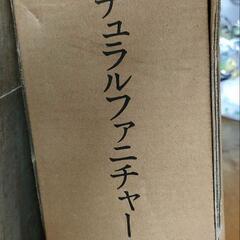 チュラルファニチャー